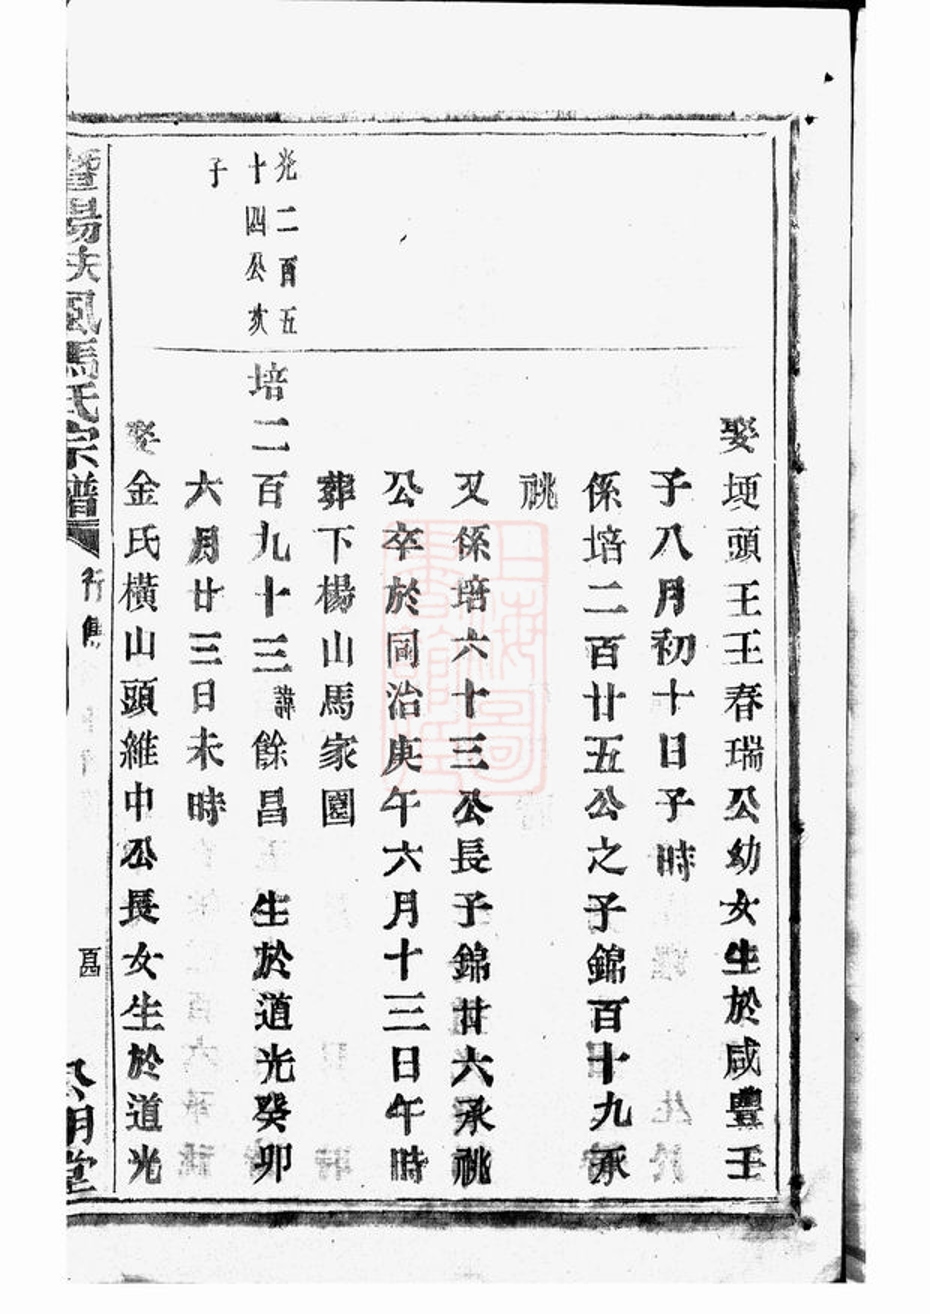 娶埂頭王王春瑞公幼女生於咸豐王
子八月初十日子時
係培二百廿五公之子錦百十九承
祧
又係培六十三公長子錦廿六承祧
公卒於同治庚午六月十三日午時
葬下楊山馬家園
光二百五
十四公亥
子
培二百九十三諱餘昌 生於道光癸卯
六月廿三日未時
娶金氏橫山頭維中公長女生於道光
暨陽扶風馬氏宗譜 行雋
堂
上海圖書館藏